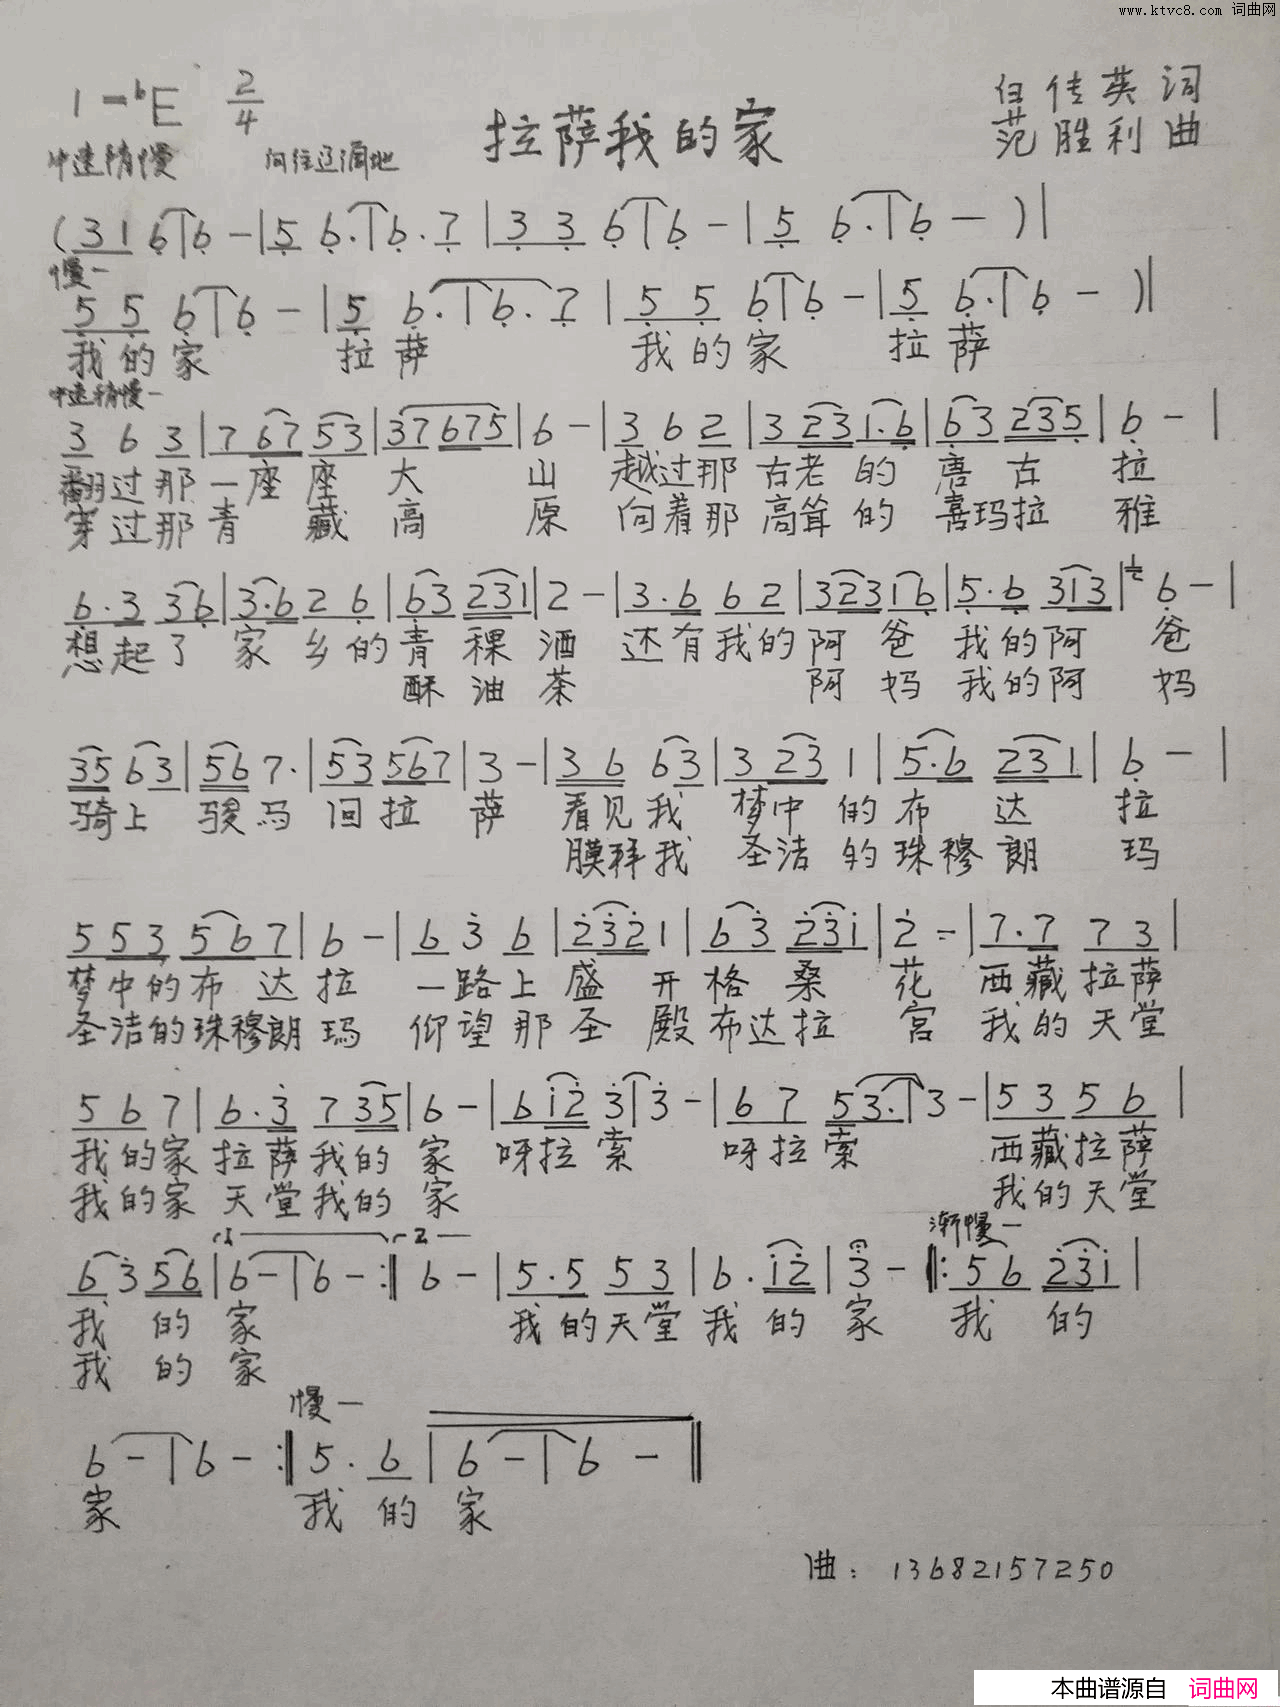 www.ktvc8.com 词曲网
1=bE 2/4
拉萨我的家
任传英词
范胜利曲
中速稍慢 向往辽阔地
(3 1 6 | 6 - | 5 6. | 6. 7 | 3 3 6 | 6 - | 5 6. | 6 - ) |
慢一
5 5 6 | 6 - | 5 6. | 6. 7 | 5 5 6 | 6 - | 5 6. | 6 - ) |
我的家 拉萨 我的家 拉萨
中速稍慢一
3 6 3 | 7 67 53 | 37675 | 6 - | 3 6 2 | 3 23 1.6 | 63 235 | 6 - |
翻过那一座座大山 越过那古老的唐古拉
穿过那青藏高原 向着那高耸的喜玛拉雅
6.3 36 | 3.6 2 6 | 63 231 | 2 - | 3.6 6 2 | 323 16 | 5.6 313 | 6 - |
想起了家乡的青稞酒 还有我的阿爸我的阿爸
酥油茶 阿妈我的阿妈
35 63 | 56 7. | 53 567 | 3 - | 3 6 63 | 3 23 1 | 5.6 231 | 6 - |
骑上骏马回拉萨 看见我梦中的布达拉
膜拜我圣洁的珠穆朗玛
5 5 3 5 6 7 | 6 - | 6 3 6 | 232 1 | 6 3 231 | 2 = | 7.7 7 3 |
梦中的布达拉 一路上盛开格桑花 西藏拉萨
圣洁的珠穆朗玛 仰望那圣殿布达拉宫 我的天堂
5 6 7 | 6.3 7 35 | 6 - | 6 12 3 | 3 - | 6 7 53. | 3 - | 5 3 5 6 |
我的家拉萨我的家 呀拉索 呀拉索 西藏拉萨
我的家天堂我的家 我的天堂
1 2 渐慢一
6 3 56 | 6 - | 6 - :‖ 6 - | 5.5 5 3 | 6. 12 | 3 - ‖: 5 6 231 |
我的家 我的天堂我的家 我的
我的家
慢一
6 - | 6 - :‖ 5. 6 | 6 - | 6 - ‖
家 我的家
曲：13682157250
本曲谱源自 词曲网